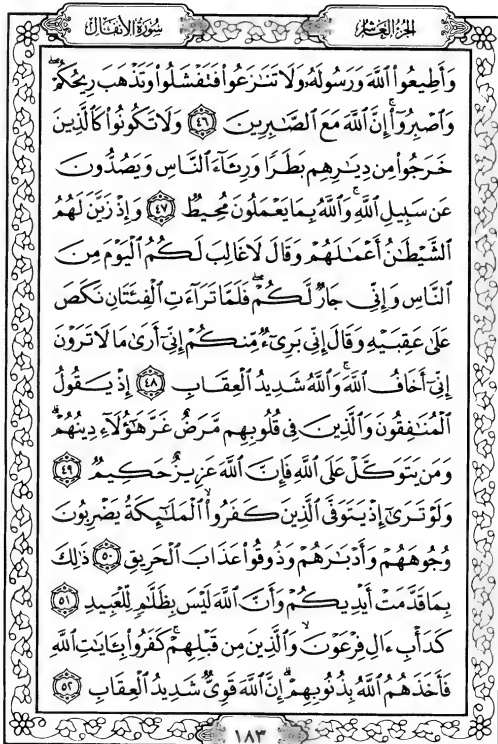 سُورَةُ الأَنفَال
الجزء العاشر
وَأَطِيعُوا۟ ٱللَّهَ وَرَسُولَهُۥ وَلَا تَنَٰزَعُوا۟ فَتَفْشَلُوا۟ وَتَذْهَبَ رِيحُكُمْ ۖ
وَٱصْبِرُوٓا۟ ۚ إِنَّ ٱللَّهَ مَعَ ٱلصَّٰبِرِينَ ٤٦ وَلَا تَكُونُوا۟ كَٱلَّذِينَ
خَرَجُوا۟ مِن دِيَٰرِهِم بَطَرًا وَرِئَآءَ ٱلنَّاسِ وَيَصُدُّونَ
عَن سَبِيلِ ٱللَّهِ ۚ وَٱللَّهُ بِمَا يَعْمَلُونَ مُحِيطٌ ٤٧ وَإِذْ زَيَّنَ لَهُمُ
ٱلشَّيْطَٰنُ أَعْمَٰلَهُمْ وَقَالَ لَا غَالِبَ لَكُمُ ٱلْيَوْمَ مِنَ
ٱلنَّاسِ وَإِنِّى جَارٌ لَّكُمْ ۖ فَلَمَّا تَرَآءَتِ ٱلْفِئَتَانِ نَكَصَ
عَلَىٰ عَقِبَيْهِ وَقَالَ إِنِّى بَرِىٓءٌ مِّنكُمْ إِنِّىٓ أَرَىٰ مَا لَا تَرَوْنَ
إِنِّىٓ أَخَافُ ٱللَّهَ ۚ وَٱللَّهُ شَدِيدُ ٱلْعِقَابِ ٤٨ إِذْ يَقُولُ
ٱلْمُنَٰفِقُونَ وَٱلَّذِينَ فِى قُلُوبِهِم مَّرَضٌ غَرَّ هَٰٓؤُلَآءِ دِينُهُمْ ۗ
وَمَن يَتَوَكَّلْ عَلَى ٱللَّهِ فَإِنَّ ٱللَّهَ عَزِيزٌ حَكِيمٌ ٤٩
وَلَوْ تَرَىٰٓ إِذْ يَتَوَفَّى ٱلَّذِينَ كَفَرُوا۟ ۙ ٱلْمَلَٰٓئِكَةُ يَضْرِبُونَ
وُجُوهَهُمْ وَأَدْبَٰرَهُمْ وَذُوقُوا۟ عَذَابَ ٱلْحَرِيقِ ٥٠ ذَٰلِكَ
بِمَا قَدَّمَتْ أَيْدِيكُمْ وَأَنَّ ٱللَّهَ لَيْسَ بِظَلَّٰمٍ لِّلْعَبِيدِ ٥١
كَدَأْبِ ءَالِ فِرْعَوْنَ ۙ وَٱلَّذِينَ مِن قَبْلِهِمْ ۚ كَفَرُوا۟ بِـَٔايَٰتِ ٱللَّهِ
فَأَخَذَهُمُ ٱللَّهُ بِذُنُوبِهِمْ ۗ إِنَّ ٱللَّهَ قَوِىٌّ شَدِيدُ ٱلْعِقَابِ ٥٢
١٨٣